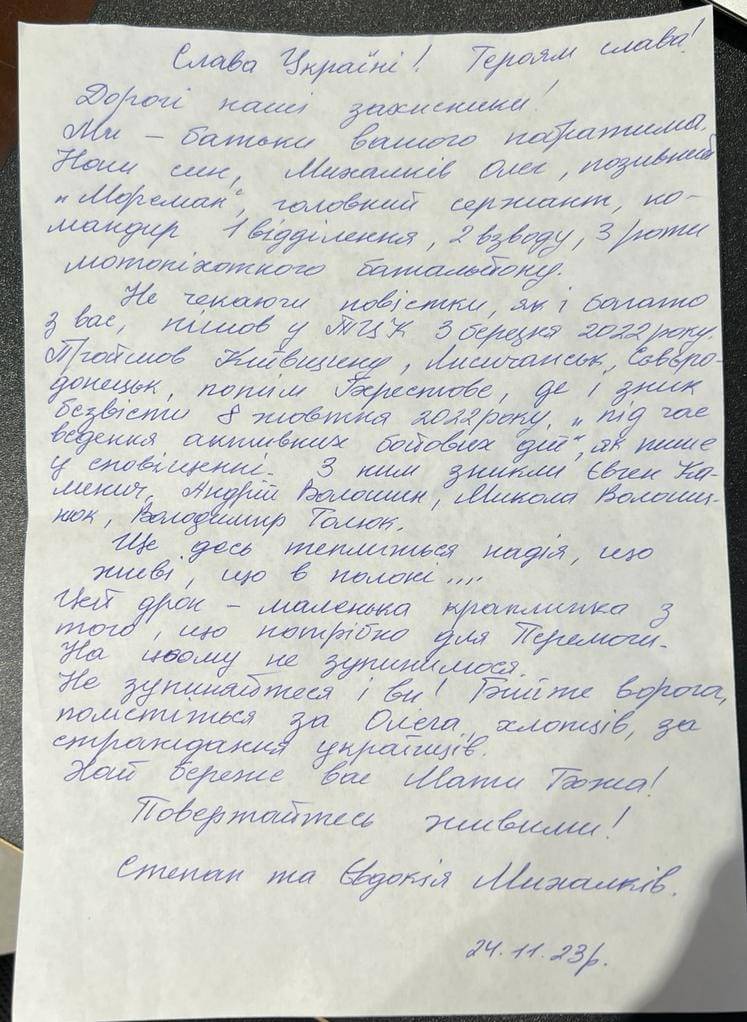 Слава Україні! Героям слава!
Дорогі наші захисники!
Ми – батьки вашого побратима.
Наш син, Михалків Олег, позивний
"Морсман", головний сержант, ко-
мандир 1 відділення, 2 взводу, 3 роти
мотопіхотного батальйону.
Не чекаючи повістки, як і багато
з вас, пішов у ТЦК 3 березня 2022 року.
Пройшов Київщину, Лисичанськ, Сєвєро-
донецьк, потім Берестове, де і зник
безвісти 8 жовтня 2022 року, "під час
ведення активних бойових дій", як пише
у сповіщенні. З ним зникли Євген Ка-
менич, Андрій Волошин, Микола Волощ-
нюк, Володимир Толюк.
Ще десь теплиться надія, що
живі, що в полоні....
Цей дрон – маленька краплинка з
того, що потрібно для Перемоги.
На цьому не зупинимося.
Не зупиняйтеся і ви! Бийте ворога,
помстіться за Олега, хлопців, за
страждання українців.
Хай береже вас Мати Божа!
Повертайтесь живими!
Степан та Євдокія Михалків.
24.11.23р.